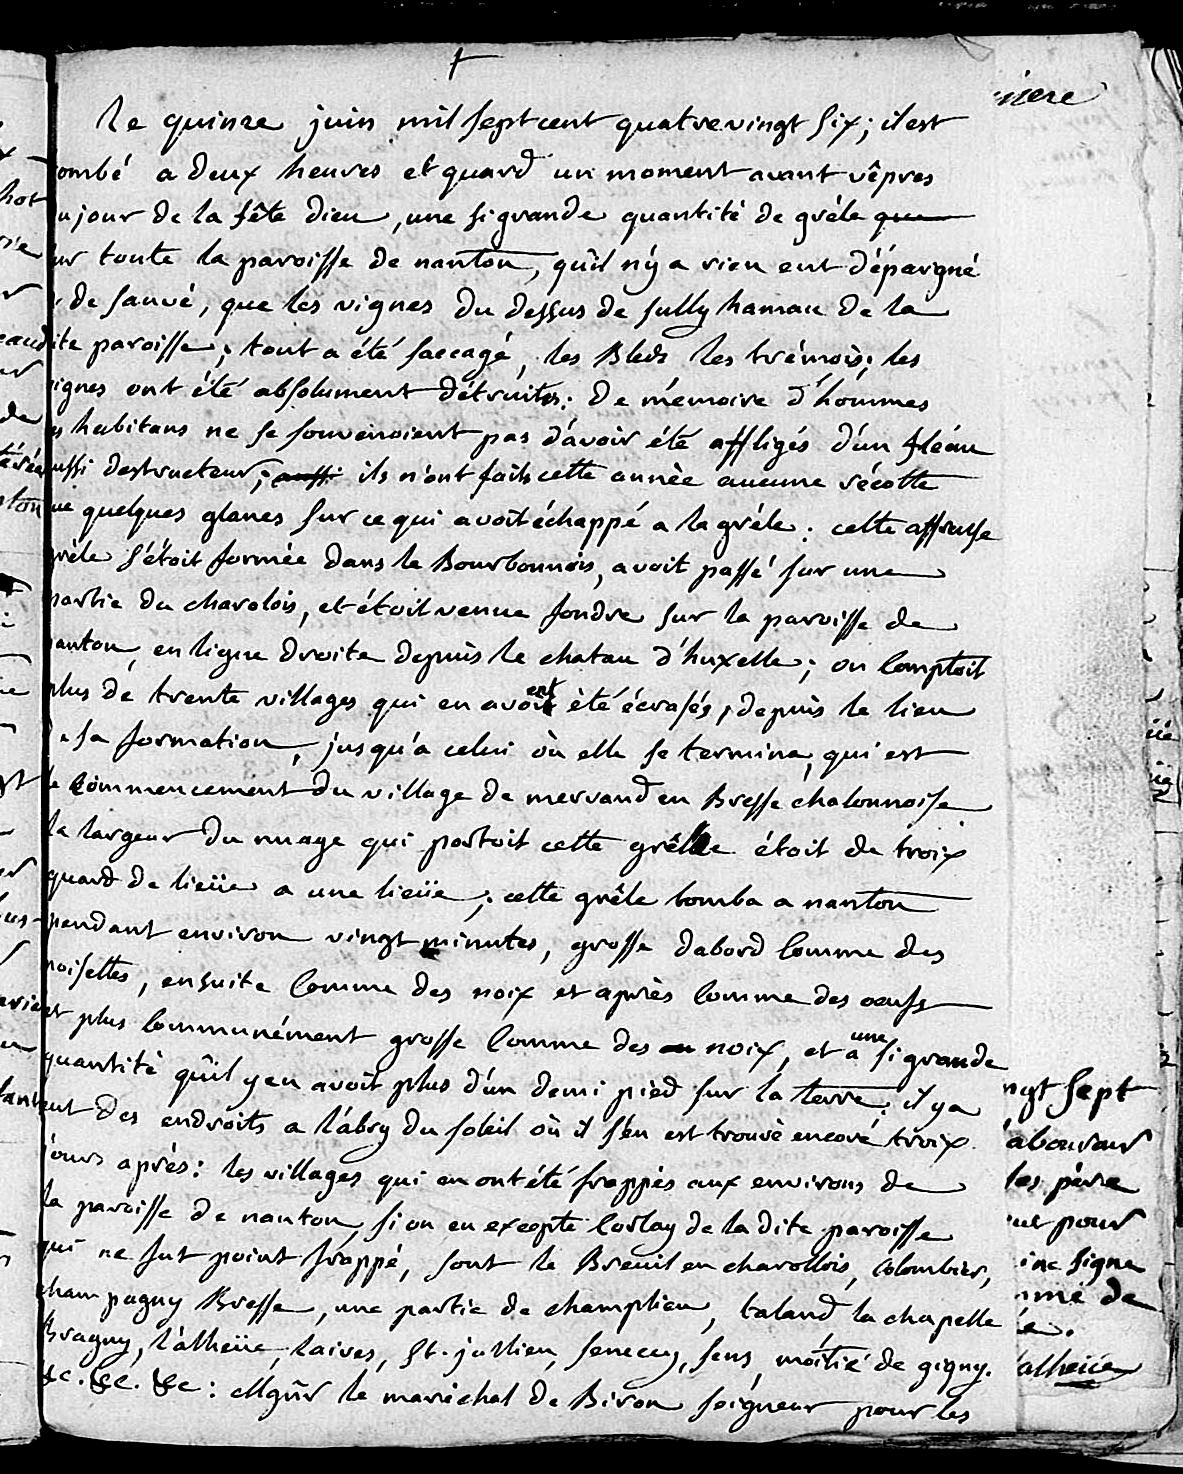 Le quinze juin mil sept cent quatre vingt six; il est
ombé a deux heures et quard un moment avant vêpres
u jour de la fête dieu, une si grande quantité de gréle que
ur toute la paroisse de nanton, qu'il n'y a rien eut d'épargné
de sauvé, que les vignes du dessus de sully hamau de la
ite paroisse; tout a été saccagé, les Bleds les trémois; les
ignes ont été absolument détruites: de mémoire d'hommes
es habitans ne se souvenoient pas d'avoir été affligés d'un fléau
ussi destructeur; aussi ils n'ont faits cette année aucune récolte
ue quelques glanes sur ce qui avoit échappé a la gréle: cette affreuse
rèle s'étoit formée dans le Bourbonnois, avoit passé sur une
partie du charolois, et étoit venue fondre sur la paroisse de
nanton, en ligne droite depuis le chatau d'huxelle; on comptoit
plus de trente villages qui en avoient été écrasés, depuis le lieu
de sa formation, jusqu'a celui où elle se termina, qui est
le commencement du village de mervand en Bresse chalonnoise
la largeur du nuage qui portoit cette grêle étoit de troix
quard de lieüe a une lieüe; cette grêle tomba a nanton
pendant environ vingt minutes, grosse dabord comme des
noisettes, ensuite comme des noix et après comme des oeufs
et plus communément grosse comme des noix, et a une si grande
quantité qu'il y en avoit plus d'un demi pied sur la terre: il y a
eut des endroits a l'abry du soleil où il s'en est trouvé encore troix
jours après: les villages qui en ont été frappés aux environs de
la paroisse de nanton, si on en excepte Corlay de la dite paroisse
qui ne fut point frappé, sont le Breuil en charollois, Colombier,
champagny Bresse, une partie de champlieu, taland la chapelle
Bragny, l'alheüe, laives, St. jullien, senecey, sens, moitié de gigny.
&c. &c. &c: Mgñr le maréchal de Biron seigneur pour les